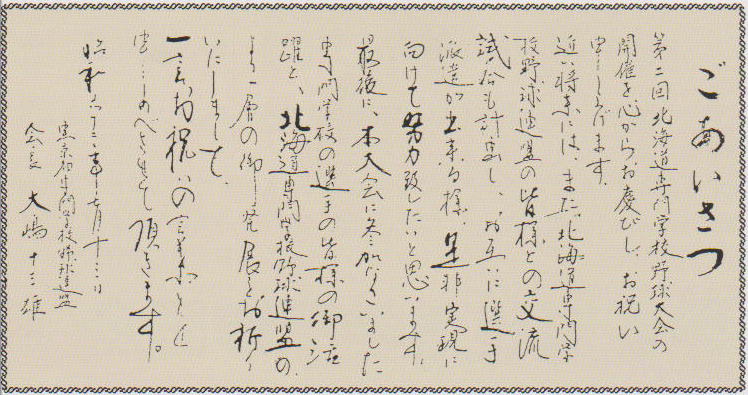 ごあいさつ
第二回北海道専門学校野球大会の
開催を心からお慶びし、お祝い
申し上げます。
近い将来には、また、北海道専門学
校野球連盟の皆様との交流
試合も計画し、お互いに選手
派遣が出来る様、是非実現に
向けて努力致したいと思います。
最後に、本大会に参加なさいました
専門学校の選手の皆様の御活
躍と、北海道専門学校野球連盟の
より一層の御発展をお祈り
いたしまして、
一言お祝いの言葉とし
申しのべさせて頂きます。
昭和六十三年七月十三日
東京都専門学校野球連盟
会長 大嶋十三雄